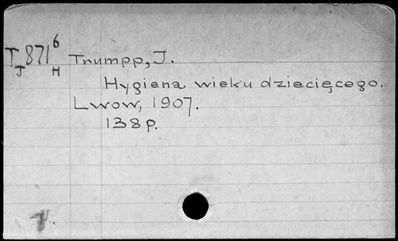 TJ 871 6H Trumpp, J.
Hygiena wieku dziecięcego.
Lwow, 1907.
138p.